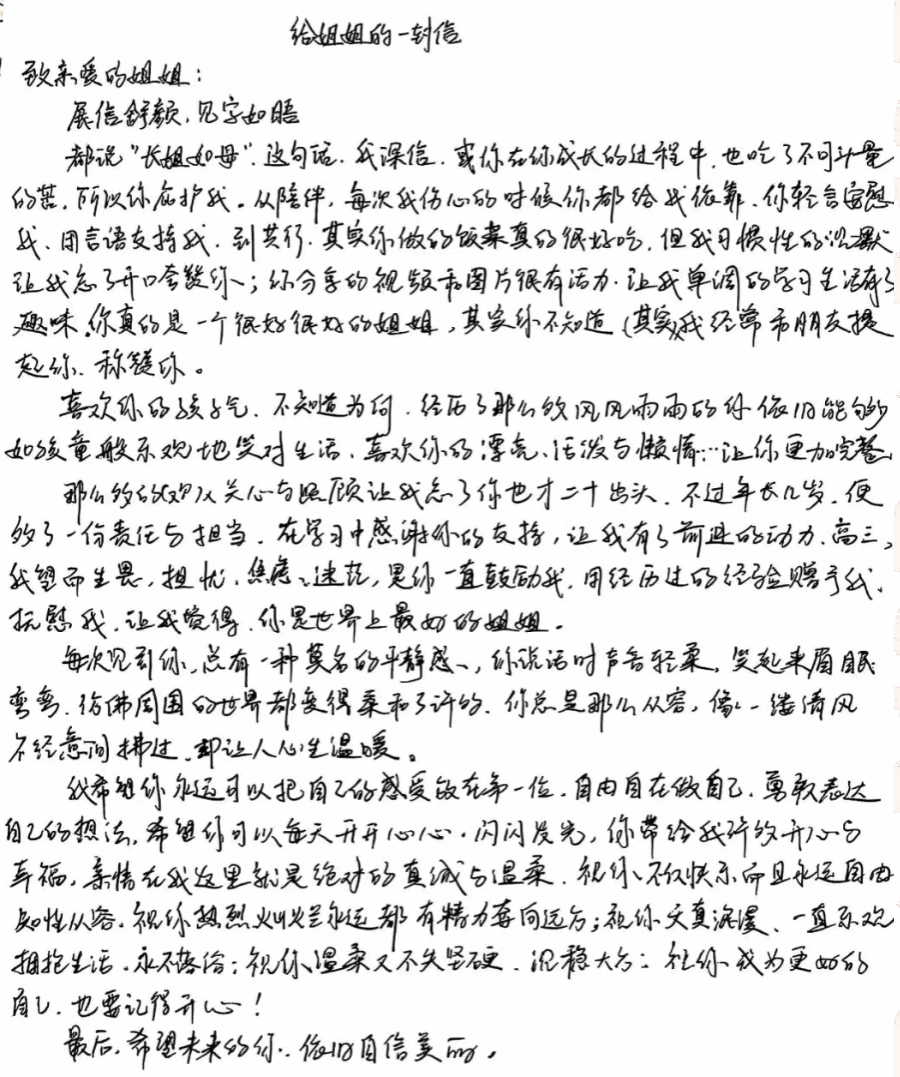 给姐姐的一封信
致亲爱的姐姐：
展信舒颜，见字如晤
都说“长姐如母”，这句话，我深信，或你在你成长的过程中，也吃了不可计量
的苦，所以你庇护我。从陪伴，每次我伤心的时候你都给我依靠、你轻言安慰
我、用言语支持我，到共行，其实你做的饭菜真的很好吃，但我习惯性的沉默
让我忘了开口夸赞你；你分享的视频和图片很有活力，让我单调的学习生活有了
趣味，你真的是一个很好很好的姐姐，其实你不知道（其实）我经常和朋友提
起你、称赞你。
喜欢你的孩子气，不知道为何，经历了那么多风风雨雨的你依旧能够
如孩童般乐观地笑对生活，喜欢你的漂亮、活泼与慵懒…让你更加完整
那么多的欢欣关心与照顾让我忘了你也才二十出头，不过年长几岁，便
多了一份责任与担当，在学习中感谢你的支持，让我有了前进的动力，高三，
我望而生畏，担忧，焦虑、迷茫，是你一直鼓励我，用经历过的经验赠予我，
抚慰我，让我觉得，你是世界上最好的姐姐。
每次见到你，总有一种莫名的平静感，你说话时声音轻柔，笑起来眉眼
弯弯，仿佛周围的世界都变得柔和了许多，你总是那么从容，像一缕清风
不经意间拂过，却让人心生温暖。
我希望你永远可以把自己的感受放在第一位，自由自在做自己，勇敢表达
自己的想法，希望你可以每天开开心心，闪闪发光，你带给我许多开心与
幸福，亲情在我这里就是绝对的真诚与温柔，祝你不仅快乐而且永远自由
知性从容，祝你热烈火火兰永远都有精力奔向远方；祝你天真浪漫，一直乐观
拥抱生活，永不落俗；祝你温柔又不失坚硬，沉稳大方；祝你成为更好的
自己，也要记得开心！
最后，希望未来的你，依旧自信美丽。